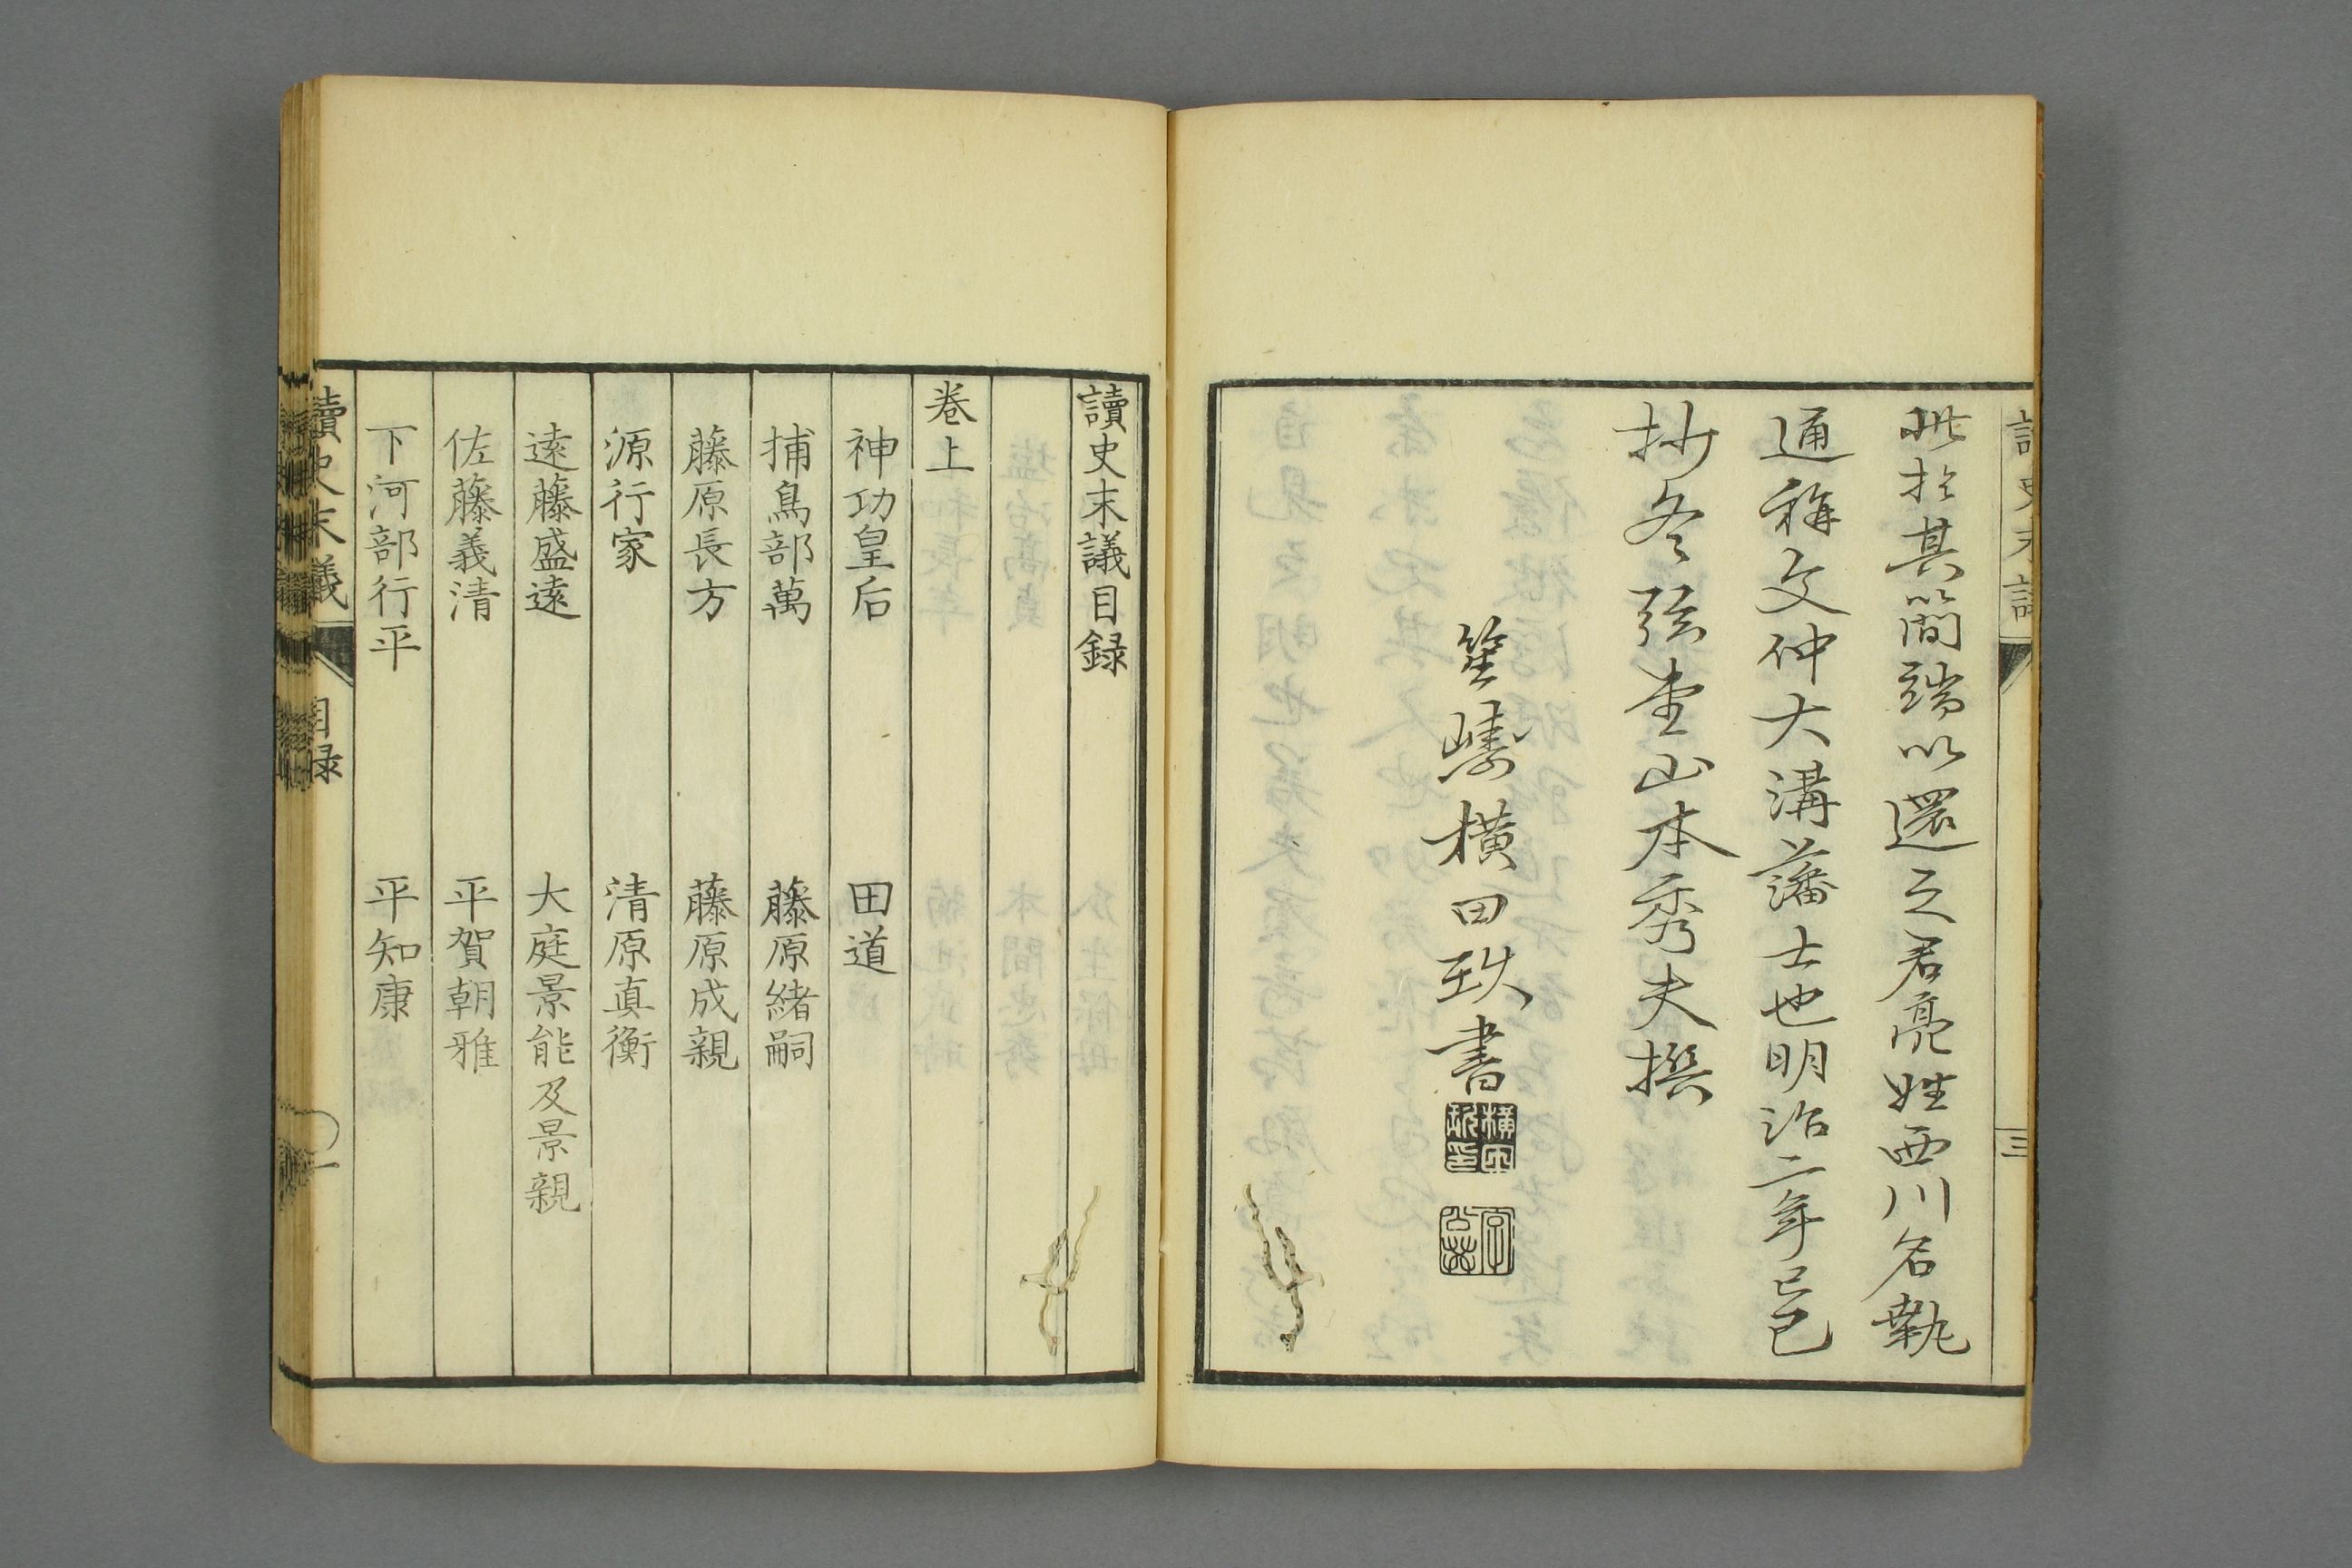 此於其簡端以還之君亮姓西川名執
通稱文仲大溝藩士也明治二年己巳
抄冬弦堂山本秀夫撰
橫田 書
三
讀史末議目録
卷上
神功皇后 田道
捕鳥部萬 藤原緒嗣
藤原長方 藤原成親
源行家 清原真衡
遠藤盛遠 大庭景能及景親
佐藤義清 平賀朝雅
下河部行平 平知康
讀史末議 目録 一